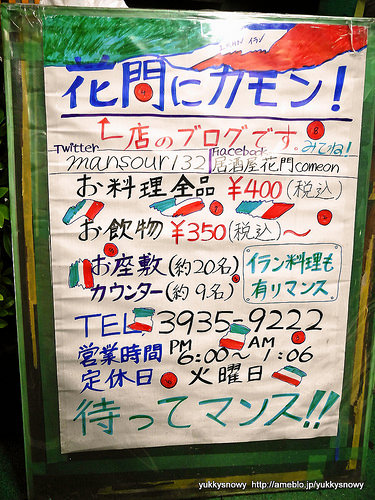 花門にカモン!
店のブログです。みてね!
Twitter
mansour132
Facebook
居酒屋花門comeon
お料理全品 ¥400(税込)
お飲物 ¥350(税込)〜
お座敷(約20名)
カウンター(約9名)
イラン料理も
有りマンス
TEL 3935-9222
営業時間 PM 6:00〜AM 1:06
定休日 火曜日
待ってマンス!!
yukkysnowy http://ameblo.jp/yukkysnowy